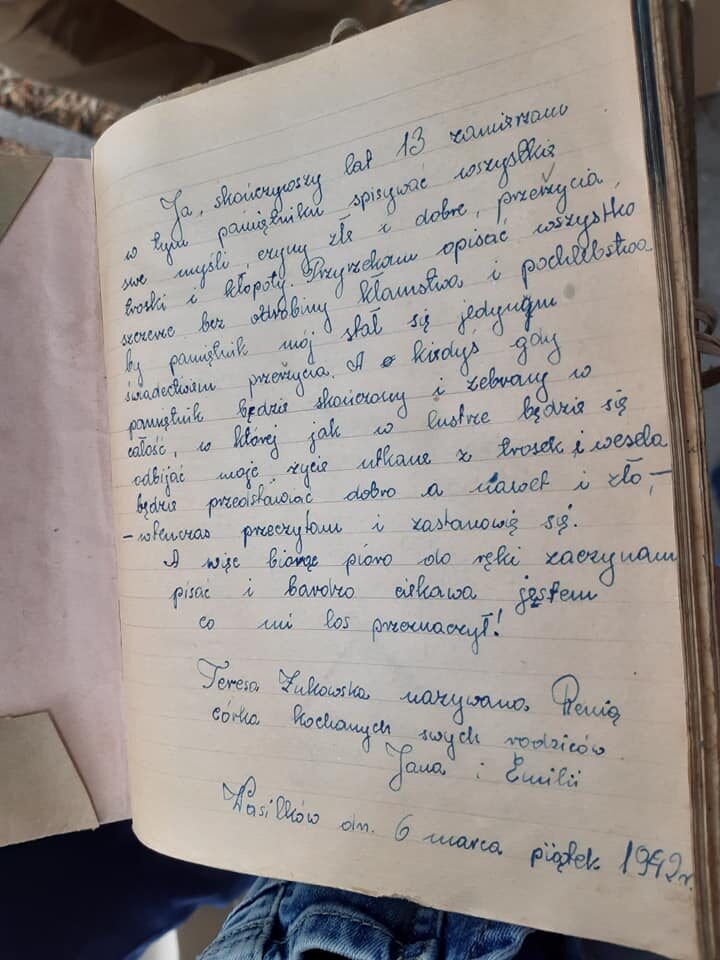 Ja, skończywszy lat 13 zamierzam
w tym pamiętniku spisywać wszystkie
swe myśli, czyny złe i dobre, przeżycia,
troski i kłopoty. Przyrzekam opisać wszystko
szczerze bez odrobiny kłamstwa i pochlebstwa
by pamiętnik mój stał się jedynym
świadectwem przeżycia. A kiedyś gdy
pamiętnik będzie skończony i zebrany w
całość, w której jak w lustrze będzie się
odbijać moje życie utkane z trosek i wesela
będzie przedstawiać dobro a nawet i zło, –
– wtenczas przeczytam i zastanowię się!
A więc biorąc pióro do ręki zaczynam
pisać i bardzo ciekawa jestem
co mi los przeznaczył!
Teresa Żukowska nazywana Renią
córka kochanych swych rodziców
Jana i Emilii
Wasilków dn. 6 marca piątek 1942 r.